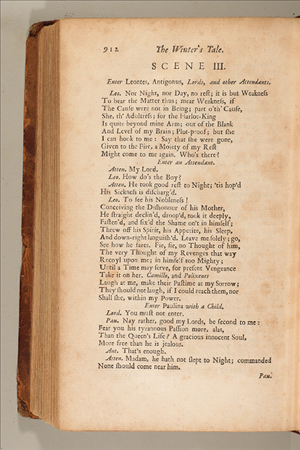 912 The Winter's Tale.
SCENE III.
Enter Leontes, Antigonus, Lords, and other Attendants.
Leo. Nor Night, nor Day, no rest; it is but Weakness
To bear the Matter thus; mear Weakness, if
The Cause were not in Being; part o'th' Cause,
She, th' Adultress; for the Harlot-King
Is quite beyond mine Arm; out of the Blank
And Level of my Brain; Plot-proof; but she
I can hock to me: Say that she were gone,
Given to the Fire, a Moiety of my Rest
Might come to me again. Who's there?
Enter an Attendant.
Atten. My Lord.
Leo. How do's the Boy?
Atten. He took good rest to Night; 'tis hop'd
His Sickness is discharg'd.
Leo. To see his Nobleness!
Conceiving the Dishonour of his Mother,
He straight declin'd, droop'd, took it deeply,
Fasten'd, and fix'd the Shame on't in himself;
Threw off his Spirit, his Appetite, his Sleep,
And down-right languish'd. Leave me solely; go,
See how he fares. Fie, fie, no Thought of him,
The very Thought of my Revenges that way
Recoyl upon me; in himself too Mighty;
Until a Time may serve, for present Vengeance
Take it on her. Camillo, and Polixenes
Laugh at me, make their Pastime at my Sorrow;
They should not laugh, if I could reach them, nor
Shall she, within my Power.
Enter Paulina with a Child.
Lord. You must not enter.
Pau. Nay rather, good my Lords, be second to me:
Fear you his tyrannous Passion more, alas,
Than the Queen's Life? A gracious innocent Soul,
More free than he is jealous.
Ant. That's enough.
Atten. Madam, he hath not slept to Night; commanded
None should come near him.
Pau.